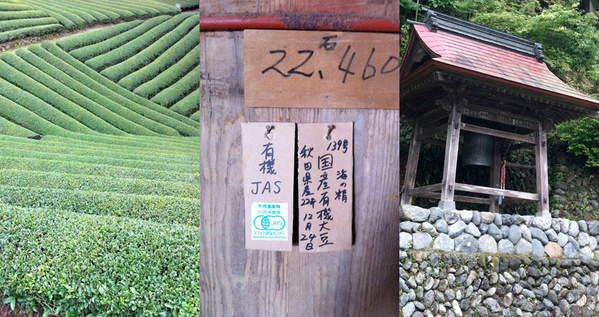 22石.460
有機
JAS
有機農産物
JAS
139号
海の精
国産有機大豆
秋田県産22年12月24日